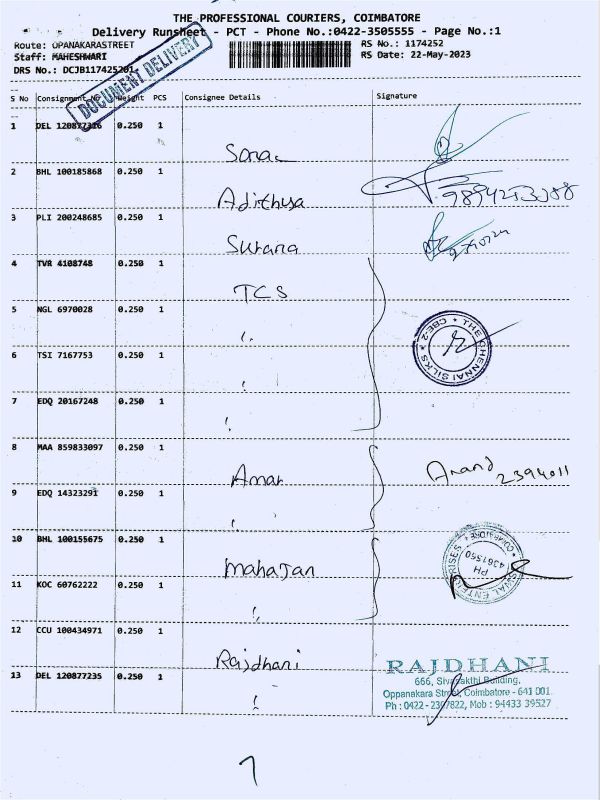 THE PROFESSIONAL COURIERS, COIMBATORE
Delivery Runsheet - PCT - Phone No.:0422-3505555 - Page No.:1
Route: OPANAKARASTREET
RS No.: 1174252
Staff: MAHESHWARI
RS Date: 22-May-2023
DRS No.: DCJB117425201
DOCUMENT DELIVERY
S No Consignment Nr Weight PCS Consignee Details Signature
1 DEL 120877316 0.250 1
Sona
2 BHL 100185868 0.250 1
Adithya
3 PLI 200248685 0.250 1
Surana
4 TVR 4108748 0.250 1
TCS
5 NGL 6970028 0.250 1
THE CHENNAI SILKS * CBE-2 *
6 TSI 7167753 0.250 1
7 EDQ 20167248 0.250 1
8 MAA 859833097 0.250 1
Amar
Anand
2394011
9 EDQ 14323291 0.250 1
10 BHL 100155675 0.250 1
Mahajan
COIMBATORE
PH
4361560
11 KOC 60762222 0.250 1
12 CCU 100434971 0.250 1
Rajdhani
13 DEL 120877235 0.250 1
RAJDHANI
666, Sivasakthi Building,
Oppanakara Street, Coimbatore - 641 001.
Mob : 94433 39527
7